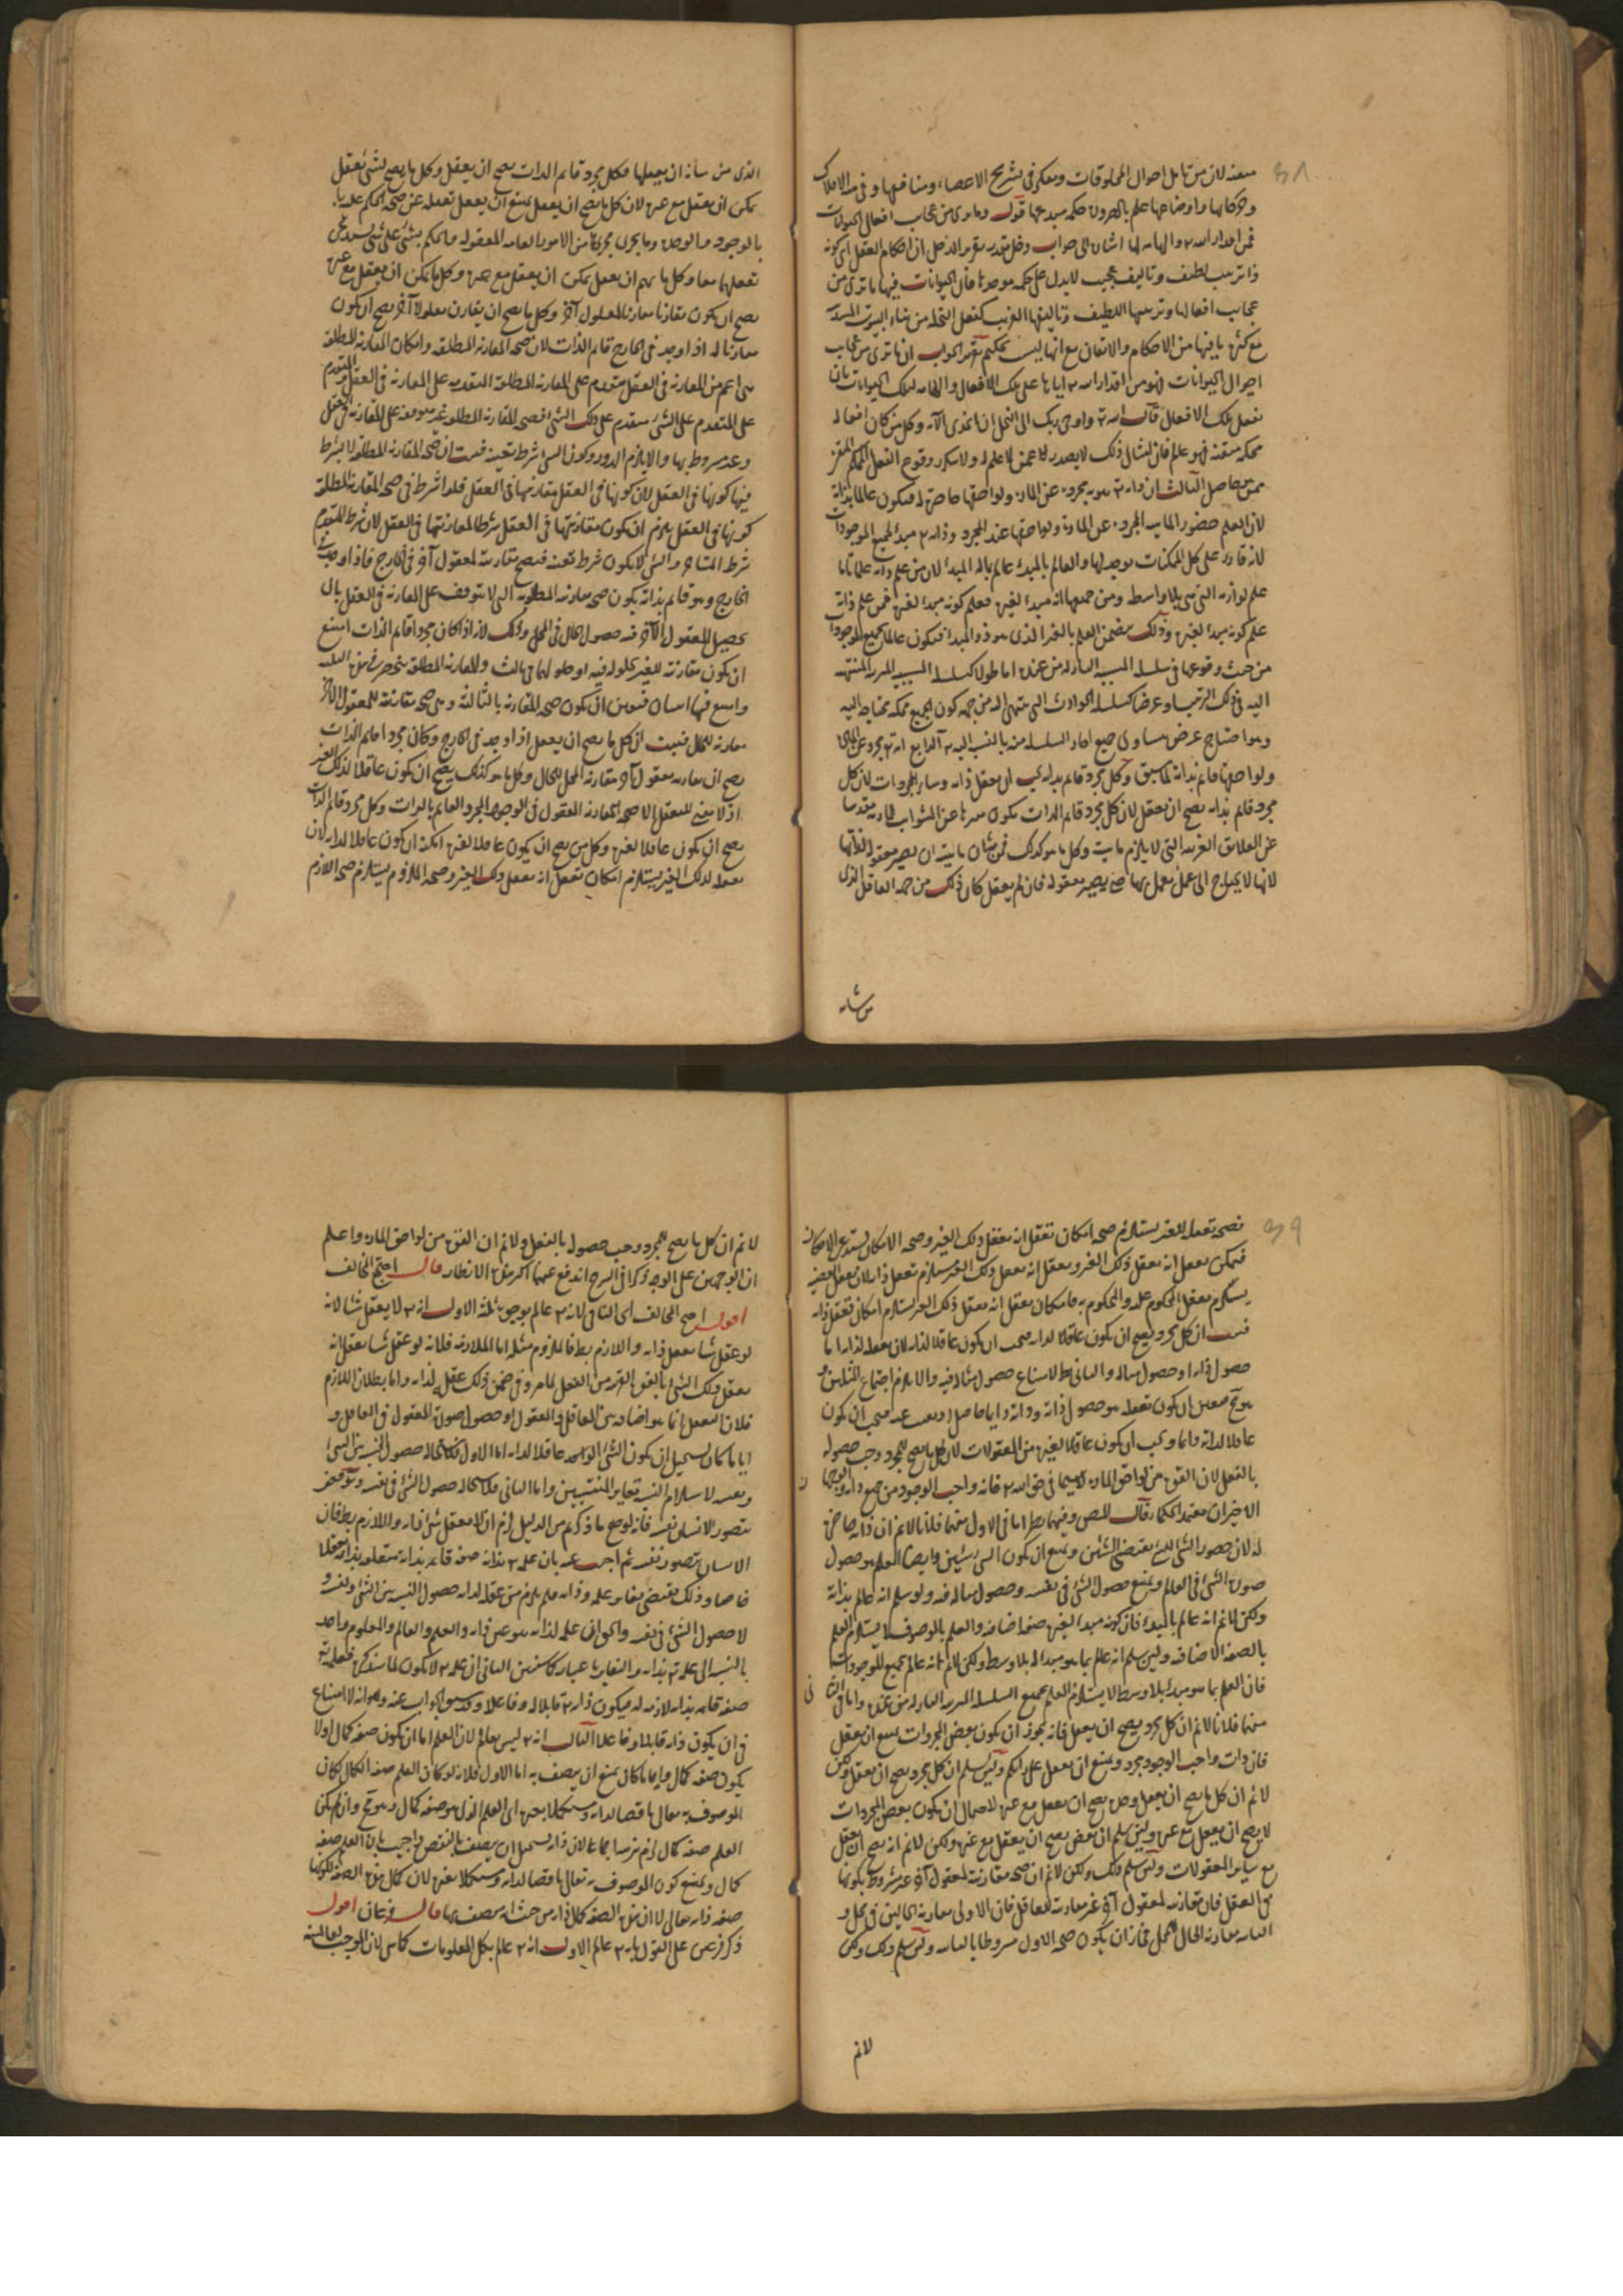 متقنة لان من تأمل احوال المخلوقات وتفكر في تشريح الاعضاء ومنافعها وفي هيئة الافلاك
وحركاتها واوضاعها علم بالضرورة حكمة مبدعها قوله وما يرى من عجايب افعال الحيوانات
فمن اقدار الله تعالى والهامه لها اشارة الى جواب دخل مقدر تقرير الدخل ان احكام الفعل اي كونه
ذا ترتيب لطيف وتاليف عجيب لا يدل على حكمة موجده فان الحيوانات فيها ما ترى من
عجايب افعالها وترتيبها اللطيف وتاليفها الغريب كفعل النحلة من بناء البيوت المسدسة
مع كثرة ما فيها من الاحكام والاتقان مع انها ليست بحكيم تقرير الجواب ان ما ترى من عجايب
احوال الحيوانات فهو من اقدار الله تعالى اياها على تلك الافعال والهامه لتلك الحيوانات بان
تفعل تلك الافعال قال الله تعالى واوحى ربك الى النحل ان اتخذي الآية وكل من كان افعاله
محكمة متقنة فهو عالم فان امثال ذلك لا يصدر الا عمن له علم ولا يتكرر وقوع الفعل المحكم المتقن
ممن حاصل الثالث ان ذاته تعالى هوية مجردة عن المادة ولواحقها حاضرة له فيكون عالما بذاته
لان العلم حضور الماهية المجردة عن المادة ولواحقها عند المجرد وذاته تعالى مبدأ لجميع الموجودات
لانه قادر على كل الممكنات موجد لها والعالم بالمبدأ عالم بما له المبدأ لان من علم ذاته علما تاما
علم لوازمه التي هي بلا واسطة ومن جملتها انه مبدأ لغيره فعلم كونه مبدأ لغيره فمن علم ذاته
علم كونه مبدأ لغيره وذلك يتضمن العلم بالغير الذي هو ذو المبدأ فيكون عالما بجميع الموجودات
من حيث وقوعها في سلسلة السببية النازلة من عنده اما طولا كسلسلة السببية المترتبة المنتهية
اليه في ذلك الترتيب او عرضا كسلسلة الحوادث التي تنتهي اليه من جهة كون الجميع ممكنة محتاجة اليه
وهو احتياج عرضي متساوي جميع احاد السلسلة منه بالنسبة اليه تعالى الرابع انه تعالى مجرد عن المادة
ولواحقها قائم بذاته لما سبق وكل مجرد قائم بذاته يجب ان يعقل ذاته وسائر المجردات لان كل
مجرد قائم بذاته يصح ان يعقل لان كل مجرد قائم الذات يكون مبرءا عن الشوائب المادية مقدسا
عن العلائق الغريبة التي لا يلزم ماهيته وكل ما هو كذلك فمن شان ماهيته ان يصير معقولة لذاتها
لانها لا يحتاج الى عمل يعمل بها حتى يصير معقولة فان لم يعقل كان ذلك من جهة العاقل الذي
من شانه
الذي من شانه ان يعقلها فكل مجرد قائم الذات يصح ان يعقل وكل ما يصح لشيء يعقل
يمكن ان يعقل مع غيره لان كل ما يصح ان يعقل يمتنع ان يعقل تعقله عن صحة الحكم عليه
بالوجود والوحدة وما يجري مجراها من الامور العامة المعقولة والحكم بشيء على شيء يستدعي
تعقلهما معا وكل ما يصح ان يعقل يمكن ان يعقل مع غيره وكل ما يمكن ان يعقل مع غيره
يصح ان يكون مقارنا لمعقول آخر وكل ما يصح ان يقارن معقولا آخر يصح ان يكون
مقارنا له اذا وجد في الخارج قائم الذات لان صحة المقارنة المطلقة وامكان المقارنة المطلقة
هي اعم من المقارنة في العقل متقدم على المقارنة المطلقة المتقدمة على المقارنة في العقل والمتقدم
على المتقدم على الشيء متقدم على ذلك الشيء فصحة المقارنة المطلقة غير موقوفة على المقارنة في العقل
وغير مشروطة بها والا يلزم الدور وكون الشيء شرط تعينه فثبت ان صحة المقارنة المطلقة لا يشترط
فيها كونها في العقل لان كونها في العقل مقارنتها في العقل فلو اشترط في صحة المقارنة المطلقة
كونها في العقل يلزم ان يكون مقارنتها في العقل شرطا لمقارنتها في العقل لان شرط المتقدم
شرط المتاخر والشيء لا يكون شرط تعينه فيصح مقارنته لمعقول آخر في الخارج فاذا وجد في
الخارج وهو قائم بذاته يكون صحة مقارنته المطلقة التي لا يتوقف على المقارنة في العقل بان
يحصل المعقول الآخر فيه حصول الحال في المحل وذلك لانه اذا كان مجردا قائم الذات امتنع
ان يكون مقارنته للغير بحلوله فيه او حلولهما في ثالث والمقارنة المطلقة منحصرة في هذه الثلثة
وامتنع فيها اثنان فتعين ان يكون صحة المقارنة بالثالثة وهي صحة مقارنته للمعقول الآخر
مقارنة المحل للحال فثبت ان كل ما يصح ان يعقل اذا وجد في الخارج وكان مجردا قائم الذات
يصح ان يقارنه معقول آخر مقارنة المحل للحال وكل ما هو كذلك يصح ان يكون عاقلا لذلك الغير
اذ لا معنى للتعقل الا صحة المقارنة المعقول في الوجود المجرد القائم بالذات وكل مجرد قائم الذات
يصح ان يكون عاقلا لغيره وكل من يصح ان يكون عاقلا لغيره امكنه ان يكون عاقلا لذاته لان
تعقله لذلك الغير يستلزم امكان تعقل انه يعقل ذلك الغير وصحة الملزوم يستلزم صحة اللازم
فصحة تعقله للغير يستلزم صحة امكان تعقل انه يعقل ذلك الغير وصحة الامكان يستدعي الامكان
فيمكن تعقل انه يعقل ذلك الغير وتعقل انه يعقل ذلك الغير يستلزم تعقل ذاته لان تعقل القضية
يستلزم تعقل المحكوم عليه والمحكوم به فامكان تعقل انه يعقل ذلك الغير يستلزم امكان تعقل ذاته
فثبت ان كل مجرد يصح ان يكون عاقلا لذاته فيجب ان يكون عاقلا لذاته لان تعقله لذاته اما
حصول ذاته او حصول مثاله والثاني بط لامتناع حصول مثاله فيه والا يلزم اجتماع المثلين
وهو مح فتعين ان يكون تعقله هو حصول ذاته وذاته دايما حاصل فيجب ان يكون
عاقلا لذاته دايما ويجب ان يكون عاقلا لغيره من المعقولات لان كل ما يصح للمجرد وجب حصوله
بالفعل لان القوة من لواحق المادة لاسيما في حق الله تعالى فانه واجب الوجود من جميع جهاته والوجهان
الاخيران معتمد الحكماء قال المص وفيهما نظر اما في الاول منهما فلانا لا نم ان ذاته حاضرة
له لان حضور الشيء للشيء يقتضي الشيئين ويمتنع ان يكون الشيء شيئين وايضا العلم هو حصول
صورة الشيء في العالم ويمتنع حصول الشيء في نفسه وحصول مثاله فيه ولو سلم انه عالم بذاته
ولكن لا نم انه عالم بالمبدأ فان كونه مبدأ لغيره صفة اضافية والعلم بالموصوف لا يستلزم العلم
بالصفة الاضافية ولئن سلم انه عالم بما هو مبدأ له بلا وسط ولكن لا نم انه عالم بجميع الموجودات
فان العلم بما هو مبدأ بلا وسط لا يستلزم العلم بجميع السلسلة المترتبة النازلة من عنده واما في الثاني
منهما فلانا لا نم ان كل مجرد يصح ان يعقل فانه يجوز ان يكون بعض المجردات يمتنع ان يعقل
فان ذات واجب الوجود مجرد ويمتنع ان يعقل على رايكم ولئن سلم ان كل مجرد يصح ان يعقل ولكن
لا نم ان كل ما يصح ان يعقل وحده يصح ان يعقل مع غيره لاحتمال ان يكون بعض المجردات
لا يصح ان يعقل مع غيره ولئن سلم ان بعض يصح ان يعقل مع غيره ولكن لا نم انه يصح ان يعقل
مع سائر المعقولات ولئن سلم ذلك ولكن لا نم ان صحة مقارنته لمعقول آخر غير مشروط بكونها
في العقل فان مقارنة لمعقول آخر غير مقارنة للعاقل فان الاولى مقارنة الحالين في محل و
الثانية مقارنة الحال للمحل فجاز ان يكون صحة الاول مشروطا بالثانية ولئن سلم ذلك ولكن
لا نم
لا نم ان كل ما يصح للمجرد وجب حصوله بالفعل ولا نم ان القوة من لواحق المادة واعلم
ان الوجهين على الوجه ذكرا في الشرح اندفع عنهما اكثر هذه الانظار قال احتج المخالف
اقول احتج المخالف اي النافي لانه تعالى عالم بوجوه ثلثة الاول انه تعالى لا يعقل شيئا لانه
لو عقل شيئا يعقل ذاته واللازم بط فالملزوم مثله اما الملازمة فلانه لو عقل شيئا يعقل انه
يعقل ذلك الشيء بالقوة القريبة من الفعل لما مر وفي ضمن ذلك عقل لذاته واما بطلان اللازم
فلان التعقل انما هو اضافة بين العاقل والمعقول او حصول صورة المعقول في العاقل و
ايا ما كان يستحيل ان يكون الشيء الواحد عاقلا لذاته اما الاول فلاستحالة حصول النسبة بين الشيء
ونفسه لاستلزام النسبة تغاير المنتسبين واما الثاني فلاستحالة حصول الشيء في نفسه ونوقض
بتصور الانسان نفسه فانه لو صح ما ذكرتم من الدليل لزم ان لا يعقل شيء ذاته واللازم بط فان
الانسان يتصور نفسه ثم اجيب عنه بان علمه تعالى بذاته صفة قائمة بذاته متعلقة بذاته تعلقا
خاصا وذلك يقتضي تغاير علمه وذاته فلم يلزم من عقله لذاته حصول النسبة بين الشيء ونفسه و
لا حصول الشيء في نفسه والحق ان علمه لذاته هو عين ذاته والعلم والعالم والمعلوم واحد
بالنسبة الى علمه تعالى بذاته والتغاير باعتبار كما سنبين الثاني ان علمه تعالى لا يكون لما سنذكره فعلمه تعالى
صفة قائمة بذاته لازمة له فيكون ذاته تعالى قابلا له وفاعلا وقد سبق الجواب عنه وهو انه لا امتناع
في ان يكون ذاته قابلا وفاعلا الثالث انه تعالى ليس بعالم لان العلم اما ان يكون صفة كمال او لا
يكون صفة كمال وايا ما كان يمتنع ان يتصف به اما الاول فلانه لو كان العلم صفة الكمال لكان
الموصوف به تعالى ناقصا لذاته ومستكملا بغيره اي العلم الذي هو صفة كمال وهو مح وان لم يكن
العلم صفة كمال لزم تنزيهه اجماعا لان ذاته يستحيل ان يتصف بالنقص واجيب بان العلم صفة
كمال ويمتنع كون الموصوف به تعالى ناقصا لذاته ومستكملا بغيره لان كمال هذه الصفة لكونها
صفة ذاته تعالى لا ان هذه الصفة كمال ذاته من حيث انه متصف بها قال فرعان اقول
ذكر فرعين على القول بانه تعالى عالم الاول انه تعالى عالم بكل المعلومات كما هي لان الموجب لعالميته